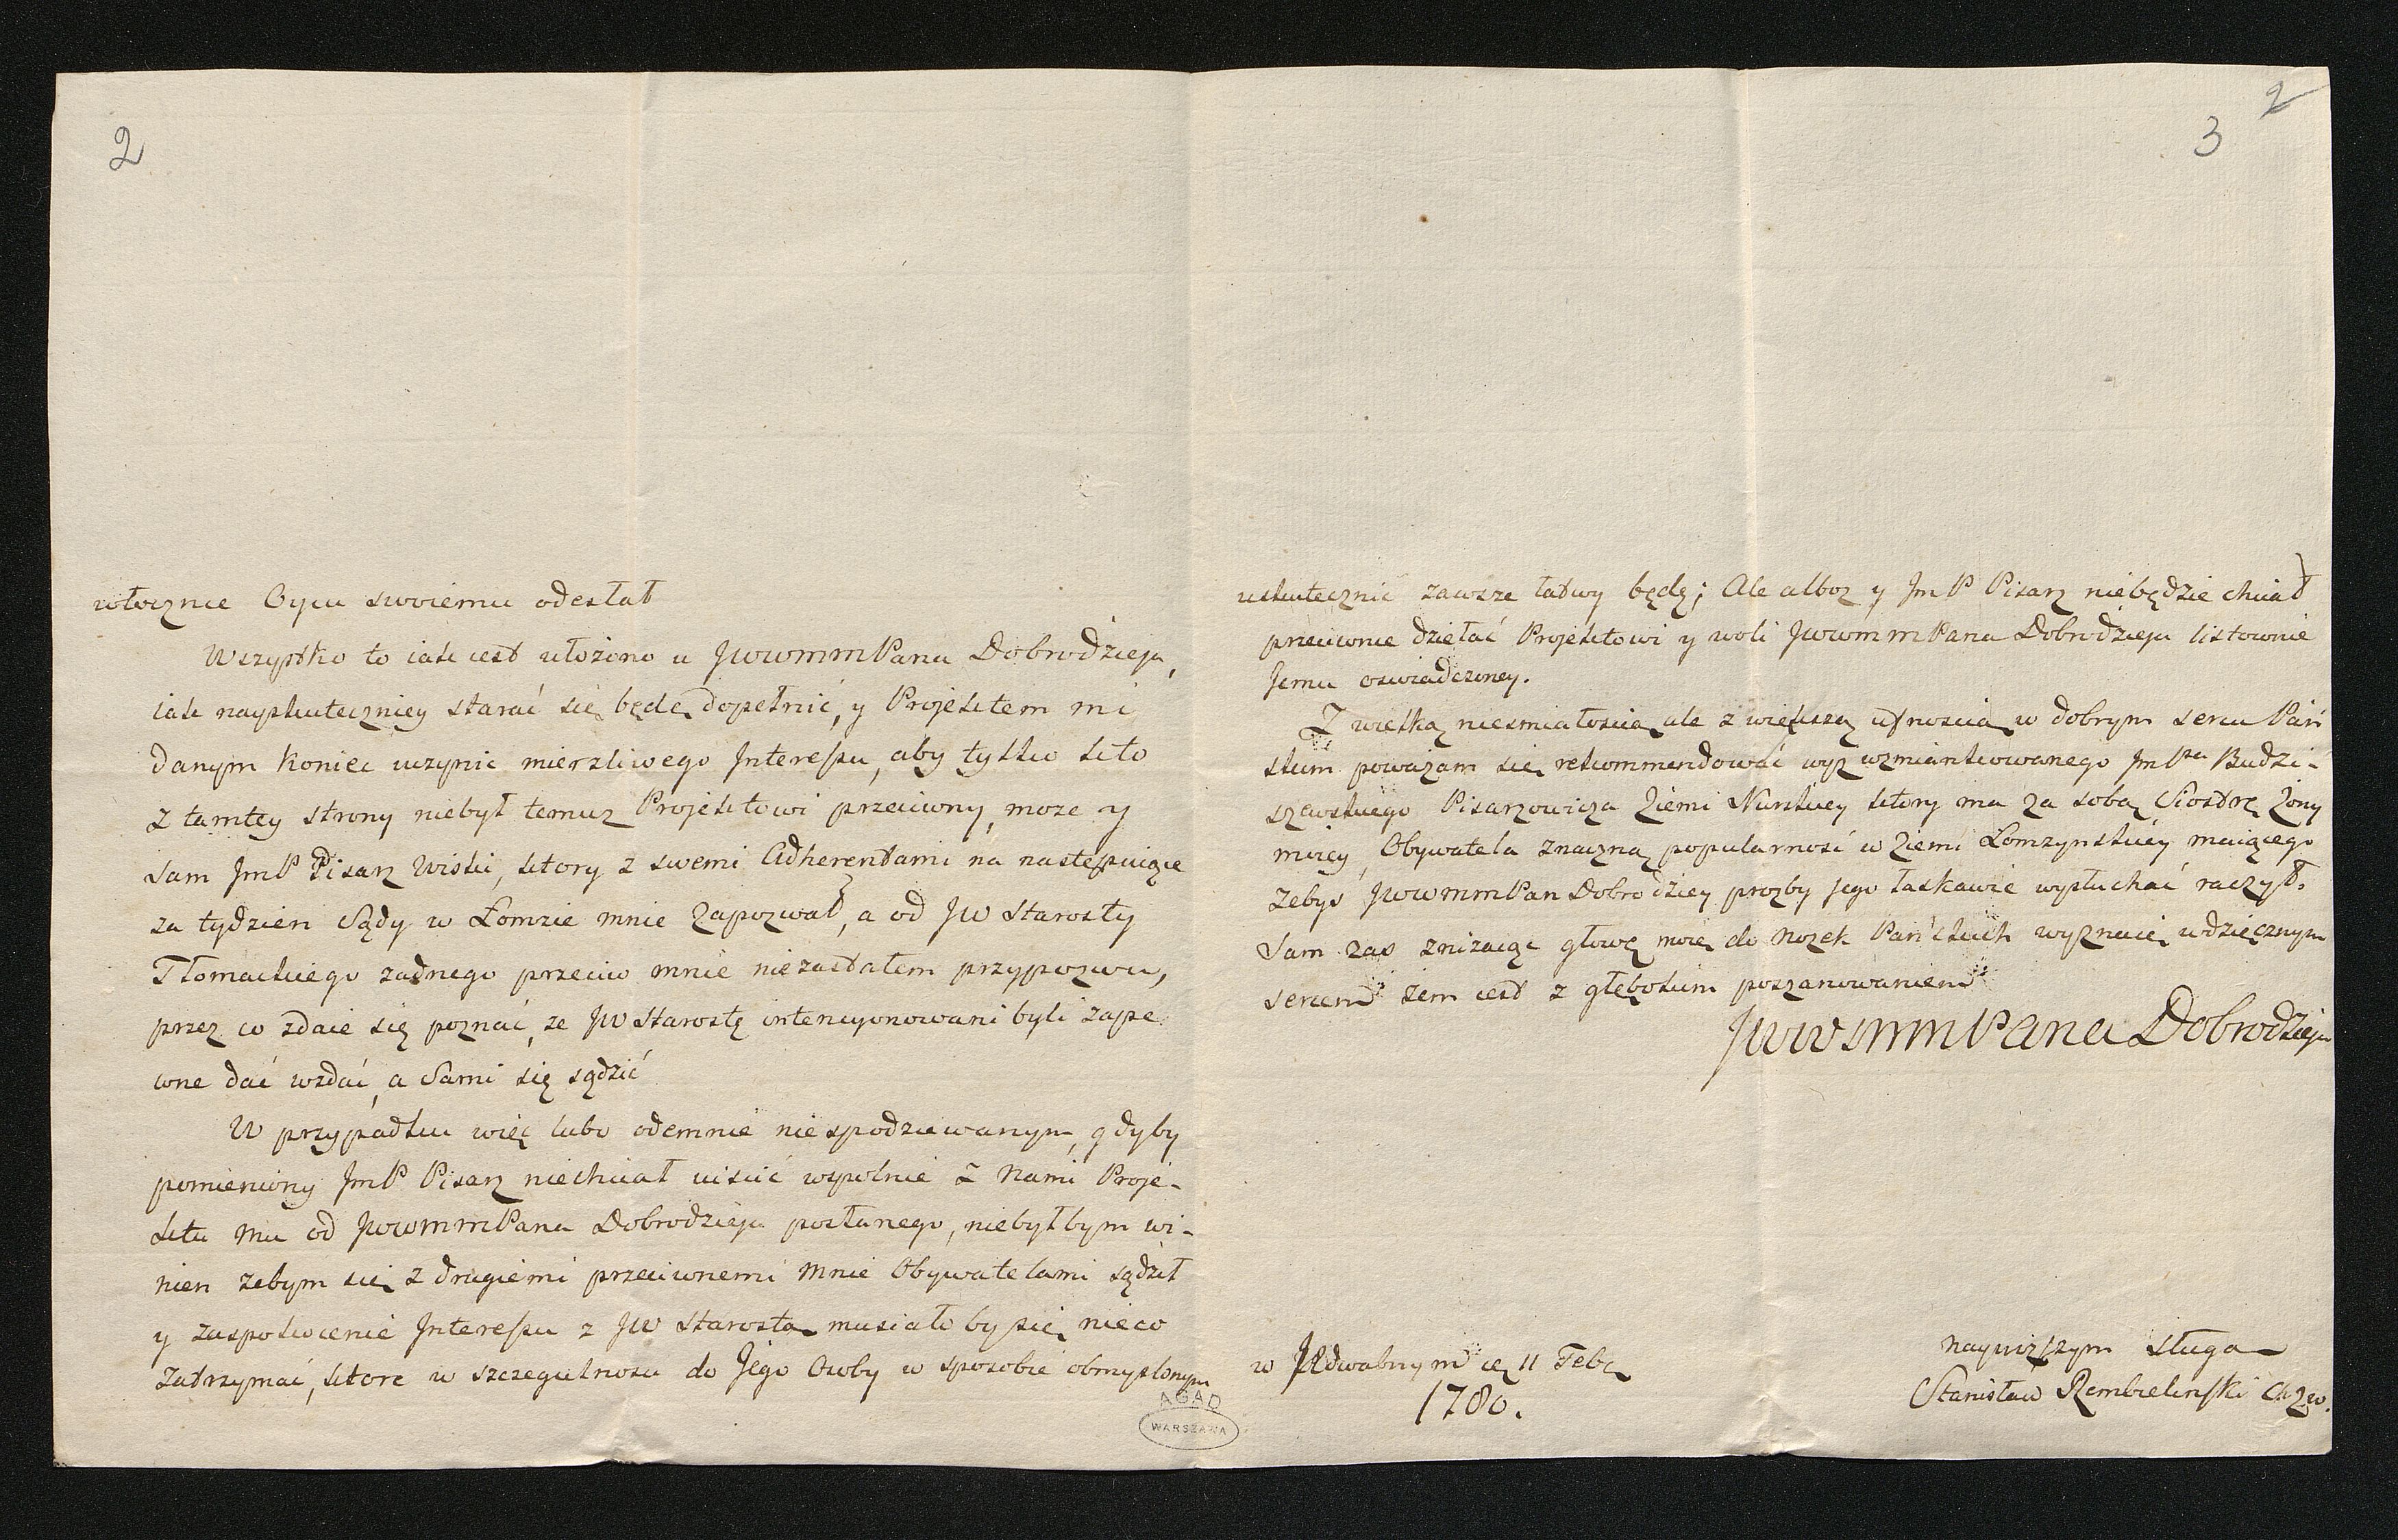 2
włocznie Oycu swoiemu odesłał
Wszystko to iak iest ułożono u JwwmmPana Dobrodzieja,
iak nayskuteczniey starać się będę dopełnić, y Projektem mi
danym koniec uczynić mierzliwego Interessu, aby tylko kto
z tamtey strony niebył temuz Projektowi przeciwny, moze y
sam JmP Pisarz Wiski, ktory z swemi Adherentami na następuiące
za tydzien Sądy w Łomzie mnie Zapozwał, a od JW Starosty
Tłomackiego zadnego przeciw mnie niezastałem przypozwu,
przez co zdaie się poznać, ze JW Starostę intencyonowani byli zape
wne dać wzdać, a Sami się sądzić
W przypadku więc lubo odemnie niespodziewanym, gdyby
pomieniony JmP Pisarz niechciał uiścić wspolnie z nami Proje-
ktu mu od JwwmmPana Dobrodzieja posłanego, niebyłbym wi-
nien zebym się z drugiemi przeciwnemi mnie Obywatelami sądził
y zaspokoienie Interessu z JW Starostą musiało by się nieco
zatrzymać, ktore w szczegulnosci do Jego Osoby w sposobie obmyslonym
AGAD
WARSZAWA
2
3
uskutecznić zawsze łatwy będę; Ale alboz y JmP Pisarz niebędzie chciał
przeciwnie dziełać Projektowi y woli JwwmmPana Dobrodzieja listownie
Jemu oswiadczoney.
Z wielką niesmiałoscią ale z większą ufnoscią w dobrym sercu Pań
skim powazam się rekommendować wyz wzmiankowanego JmPa Budzi-
szewskiego Pisarzowicza Ziemi Nurskiey ktory ma za sobą Siostrę Zony
moiey, Obywatela znaczną popularność w Ziemi Łomzynskiey maiącego
zebyś JwwmmPan Dobrodziey prozby Jego łaskawie wysłuchać raczył.
Sam zas znizaiąc głowę moię do Nozek Pańskich wyznaię wdzięcznym
sercem żem iest z głębokim poszanowaniem
JwwmmPana Dobrodzieja
w Jedwabnym d 11 Febr
1780.
nayniższym sługą
Stanisław Rembielinski Ch.Z.W.